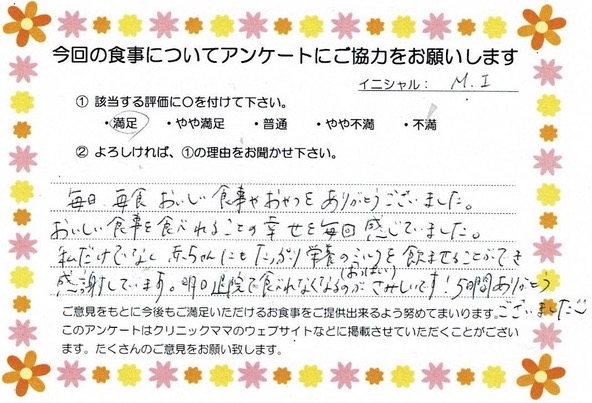 今回の食事についてアンケートにご協力をお願いします
イニシャル： M.I
① 該当する評価に〇を付けて下さい。
・満足 ・やや満足 ・普通 ・やや不満 ・不満
② よろしければ、①の理由をお聞かせ下さい。
毎日 毎食 おいしい 食事やおやつを ありがとうございました。
おいしい 食事を 食べれることの 幸せを 毎回 感じていました。
私だけでなく 赤ちゃんにも たっぷり 栄養の を 飲ませることができ
(おっぱい)
感謝しています。明日退院で食べれなくなるのが さみしいです！5日間ありがとう
ございました
ご意見をもとに今後もご満足いただけるお食事をご提供出来るよう努めてまいります。
このアンケートはクリニックママのウェブサイトなどに掲載させていただくことがござい
ます。たくさんのご意見をお願い致します。